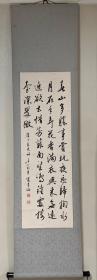 春山多勝事賞玩夜忘歸掬水
月在手弄花香滿衣興來無遠
近欲去惜芳菲南望鳴鐘處樓
臺深翠微